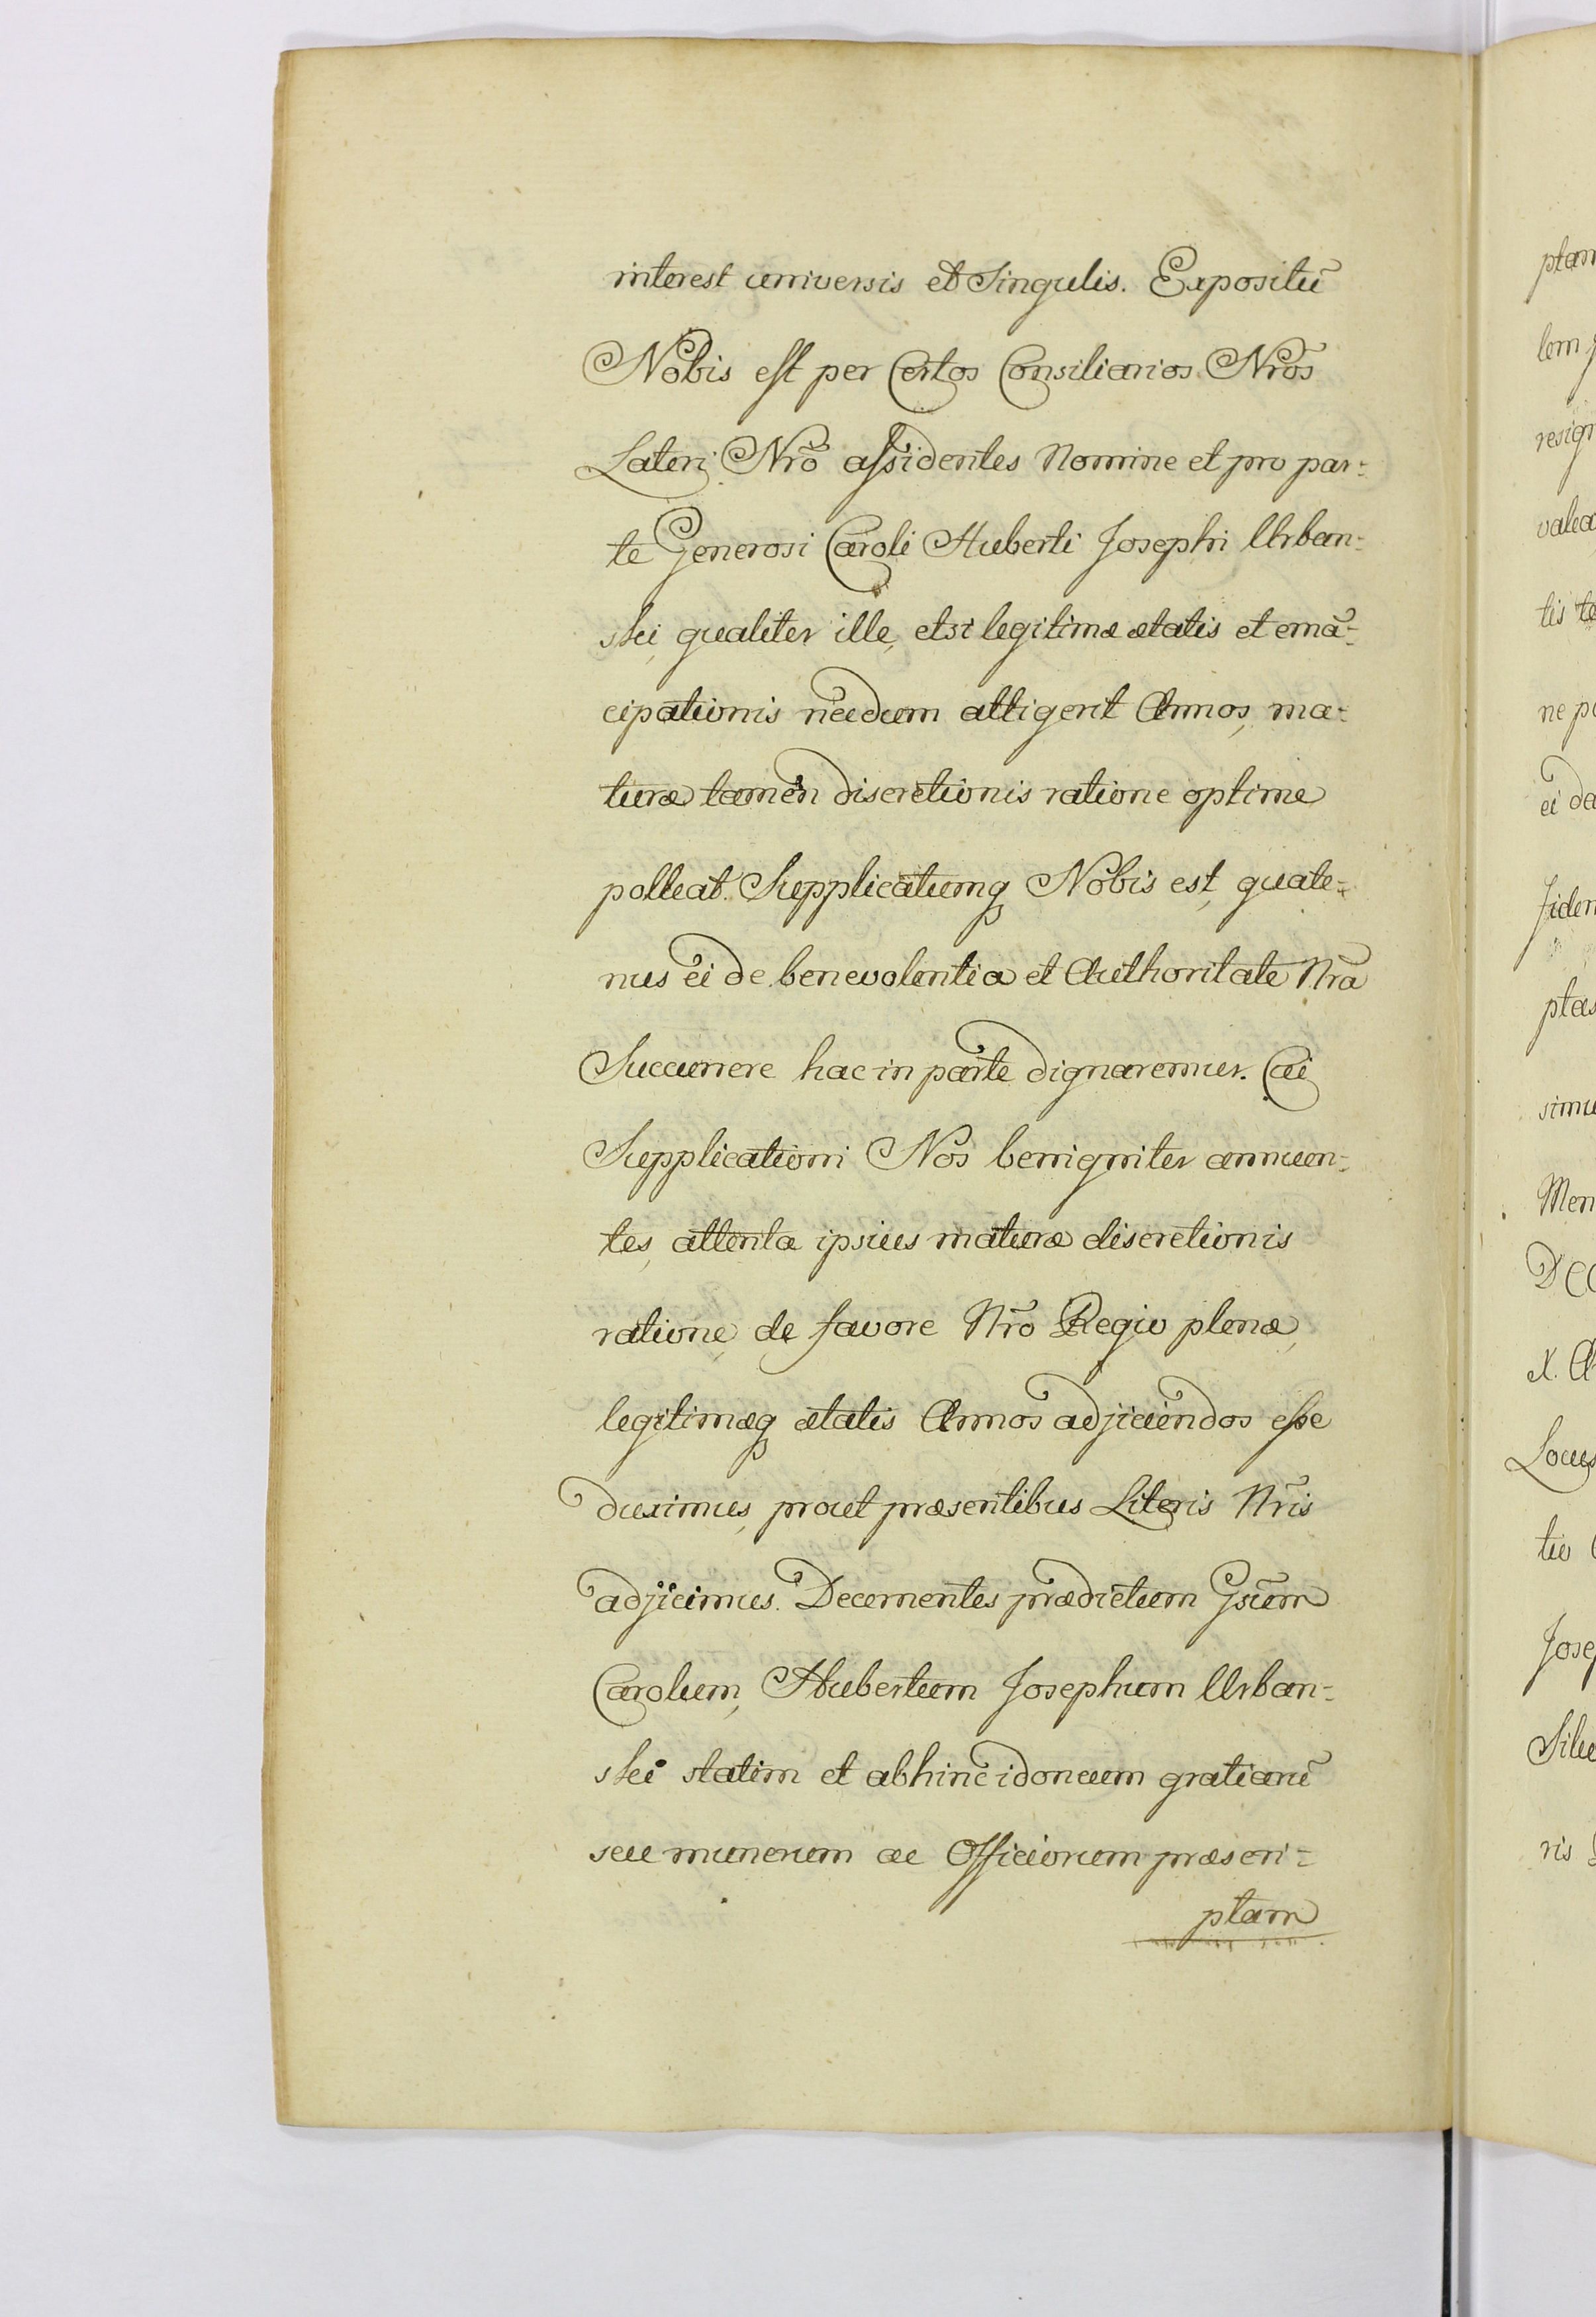 interest universis et Singulis. Expositũ
Nobis est per Certos Consiliarios Nr̃os
Lateri Nr̃o assidentes Nomine et pro par=
te Generosi Caroli Huberti Josephi Urban=
ski, qualiter ille, etsi legitimæ ætatis et emã=
cipationis necdum attigerit Annos, ma=
turæ tamen discretionis ratione optime
polleat. Supplicatumq Nobis est, quate=
nus ei de benevolentia et Authoritate Nr̃a
Succurrere hac in parte dignaremur. Cui
Supplicationi Nos benigniter annuen=
tes, attenta ipsius maturæ discretionis
ratione, de favore Nr̃o Regio plenæ,
legitimæq ætatis Annos adjiciendos esse
duximus, prout præsentibus Literis Nr̃is
adjicimus. Decernentes prædictum Gsũm
Carolum, Hubertum Josephum Urban=
ski statim et abhinc idoneum gratiarũ
seu munerum ac Officiorum præscri=
ptam
ptam
lem
resign
valea
tis te
ne po
ei da
fidem
ptas
simu
Men
DCC
X. A
Locus
tio
Jose
Silv
ris